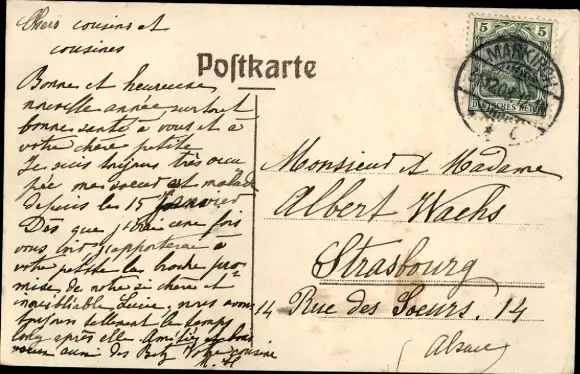 Chers cousins et
cousines
Bonne et heureuse
nouvelle année surtout
bonne santé à vous et à
votre chère petite
Je suis toujours très occu
pée ma soeur et malade
depuis les 15
Dès que j'irai une fois
vous voir j'apporterai à
votre petite la broche pro-
mise de notre si chère et
inoubliable Lucie, nous avons
toujours tellement le temps
long après elle Amitiés et bons
voeux aussi des Votre cousine
Postkarte
5 5
MARKIRCH
DEUTSCHES REICH
Monsieur et Madame
Albert Wachs
Strasbourg
14 Rue des Soeurs. 14
(Alsace)